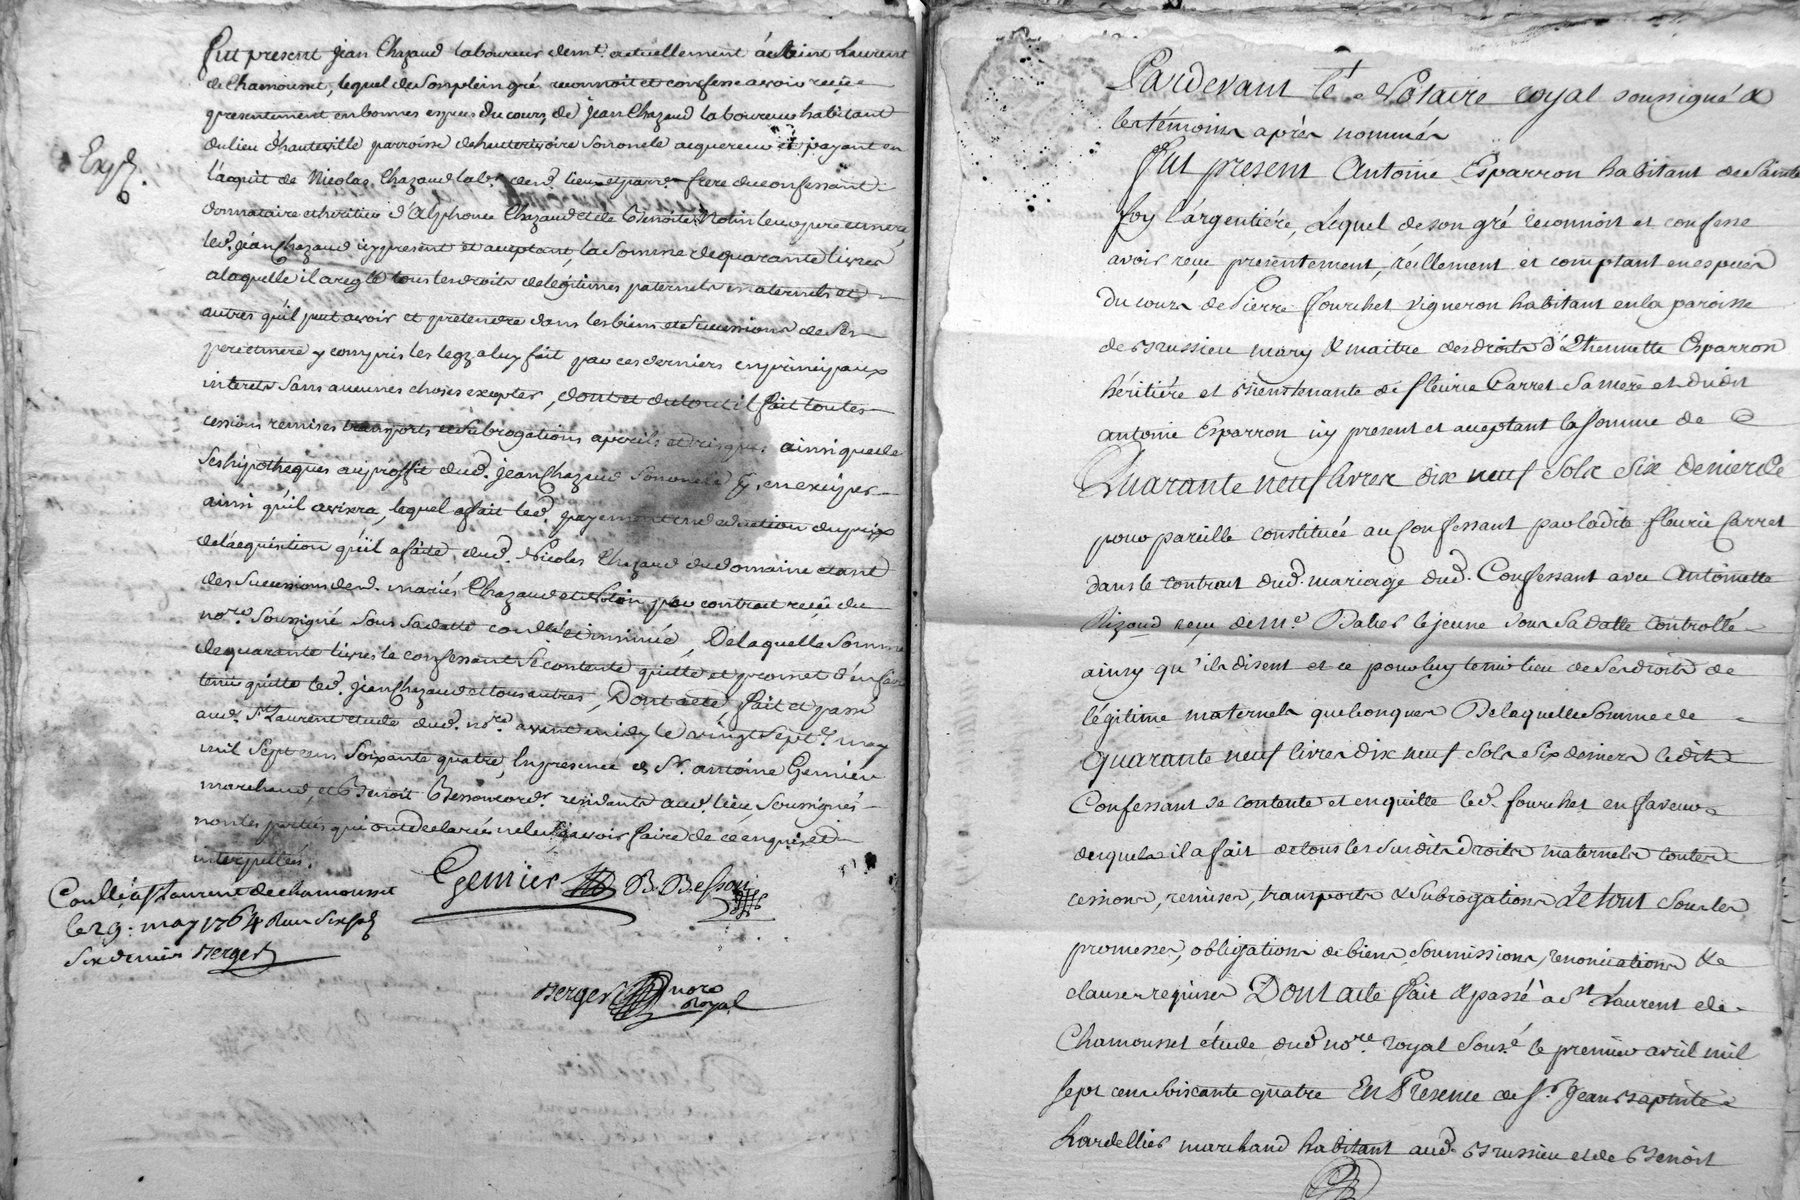 Fut present jean Chazaud laboureur demt. actuellement à Saint Laurent
de Chamousset, lequel de Son plein gré reconnoit et confesse avoir reçu
presentement en bonnes especes du cours, de jean Chazaud laboureur habitant
du lieu d'hauteville parroisse Son oncle acquereur et payant en
l'acquit de Nicolas Chazaud lab. dud. lieu et parr. frere du confessant
donnataire et heritier d'Alphonce Chazaud et de Benoite Notin leurs pere et mere,
led. jean Chazaud icy present et acceptant, la Somme de quarante livres
a laquelle il a reglé tous les droits de legitimes paternels maternels et
autres qu'il peut avoir et pretendre dans les biens et Successions de Ses
pere et mere y compris les legz a luy fait par ces derniers en principaux
interets Sans aucunes choses exceptes, dont et du tout il fait toutes
cessions remises transports et Subrogations a perils et risques ainsi que de
Ses hypotheques au proffit dud. jean Chazaud Son oncle pr. en exciper
ainsi qu'il avisera, lequel a fait led. payement en deduction du prix
de l'acquisition qu'il a faite, dud. Nicolas Chazaud du domaine etant
des Successions desd. mariés Chazaud et Notin par contrat reçu du
nore. Soussigné Sous Sa datte conllé et insinué, De laquelle Somme
de quarante livres le confessant Se contente quitte et promet d'en faire
tenir quitte led. jean Chazaud et tous autres, Dont acte fait et passé
aud. St. Laurent etude dud. nore. avant midy le vingt Sept may
mil Sept cens Soixante quatre, En presence de Sr. antoine Gemier
marchand, et Benoit Besson cordr. residents aud. lieu Soussignés
non les parties qui ont declarées ne le Sçavoir faire de ce enquis et
interpellées.
Exp.
Gemier B. Besson
Conllé a St Laurent de chamousset
le 29. may 1764 Reçu Six Sols
Six deniers Berger
Berger nore
Royal
Pardevant le Notaire royal soussigné &
les témoins après nommés
Fut present Antoine Esparron habitant de Sainte
foy l'argentiére, Lequel de son gré reconnoit et confesse
avoir reçu présentement, réellement et comptant en espèces
du cours de Pierre fourchet vigneron habitant en la paroisse
de Brussieu mary & maitre des droits d'Ethennette Esparron
héritiére et bientenante de fleurie Carret Sa mere et dudit
antoine Esparron icy present et acceptant la Somme de
Quarante neuf livres dix neuf Sols Six deniers de
pour pareille constituée au Confessant par ladite fleurie Carret
dans le contrat dud. mariage dud. Confessant avec Antoinette
Rizoud reçu de Me. Bales le jeune Sous Sa datte Controllé
ainsy qu'ils disent et ce pour luy tenir lieu de Ses droits de
légitime maternels quelconques De laquelle Somme de
quarante neuf livres dix neuf Sols Six deniers ledit
Confessant Se contente et en quitte led. fourchet en faveur
desquels il a fait de tous les Susdits droits maternels toutes
cessions, remises, transports & Subrogations Le tout Sous les
promesses, obligations de biens, Soumissions, renonciations & de
clauses requises Dont acte fait & passé à St Laurent de
Chamousset étude dud nore. royal Sousé. le premier avril mil
Sept cens Soixante quatre En Presence de Sr. Jean Baptiste
Lardellier marchand habitant aud. Brussieu et de Benoit